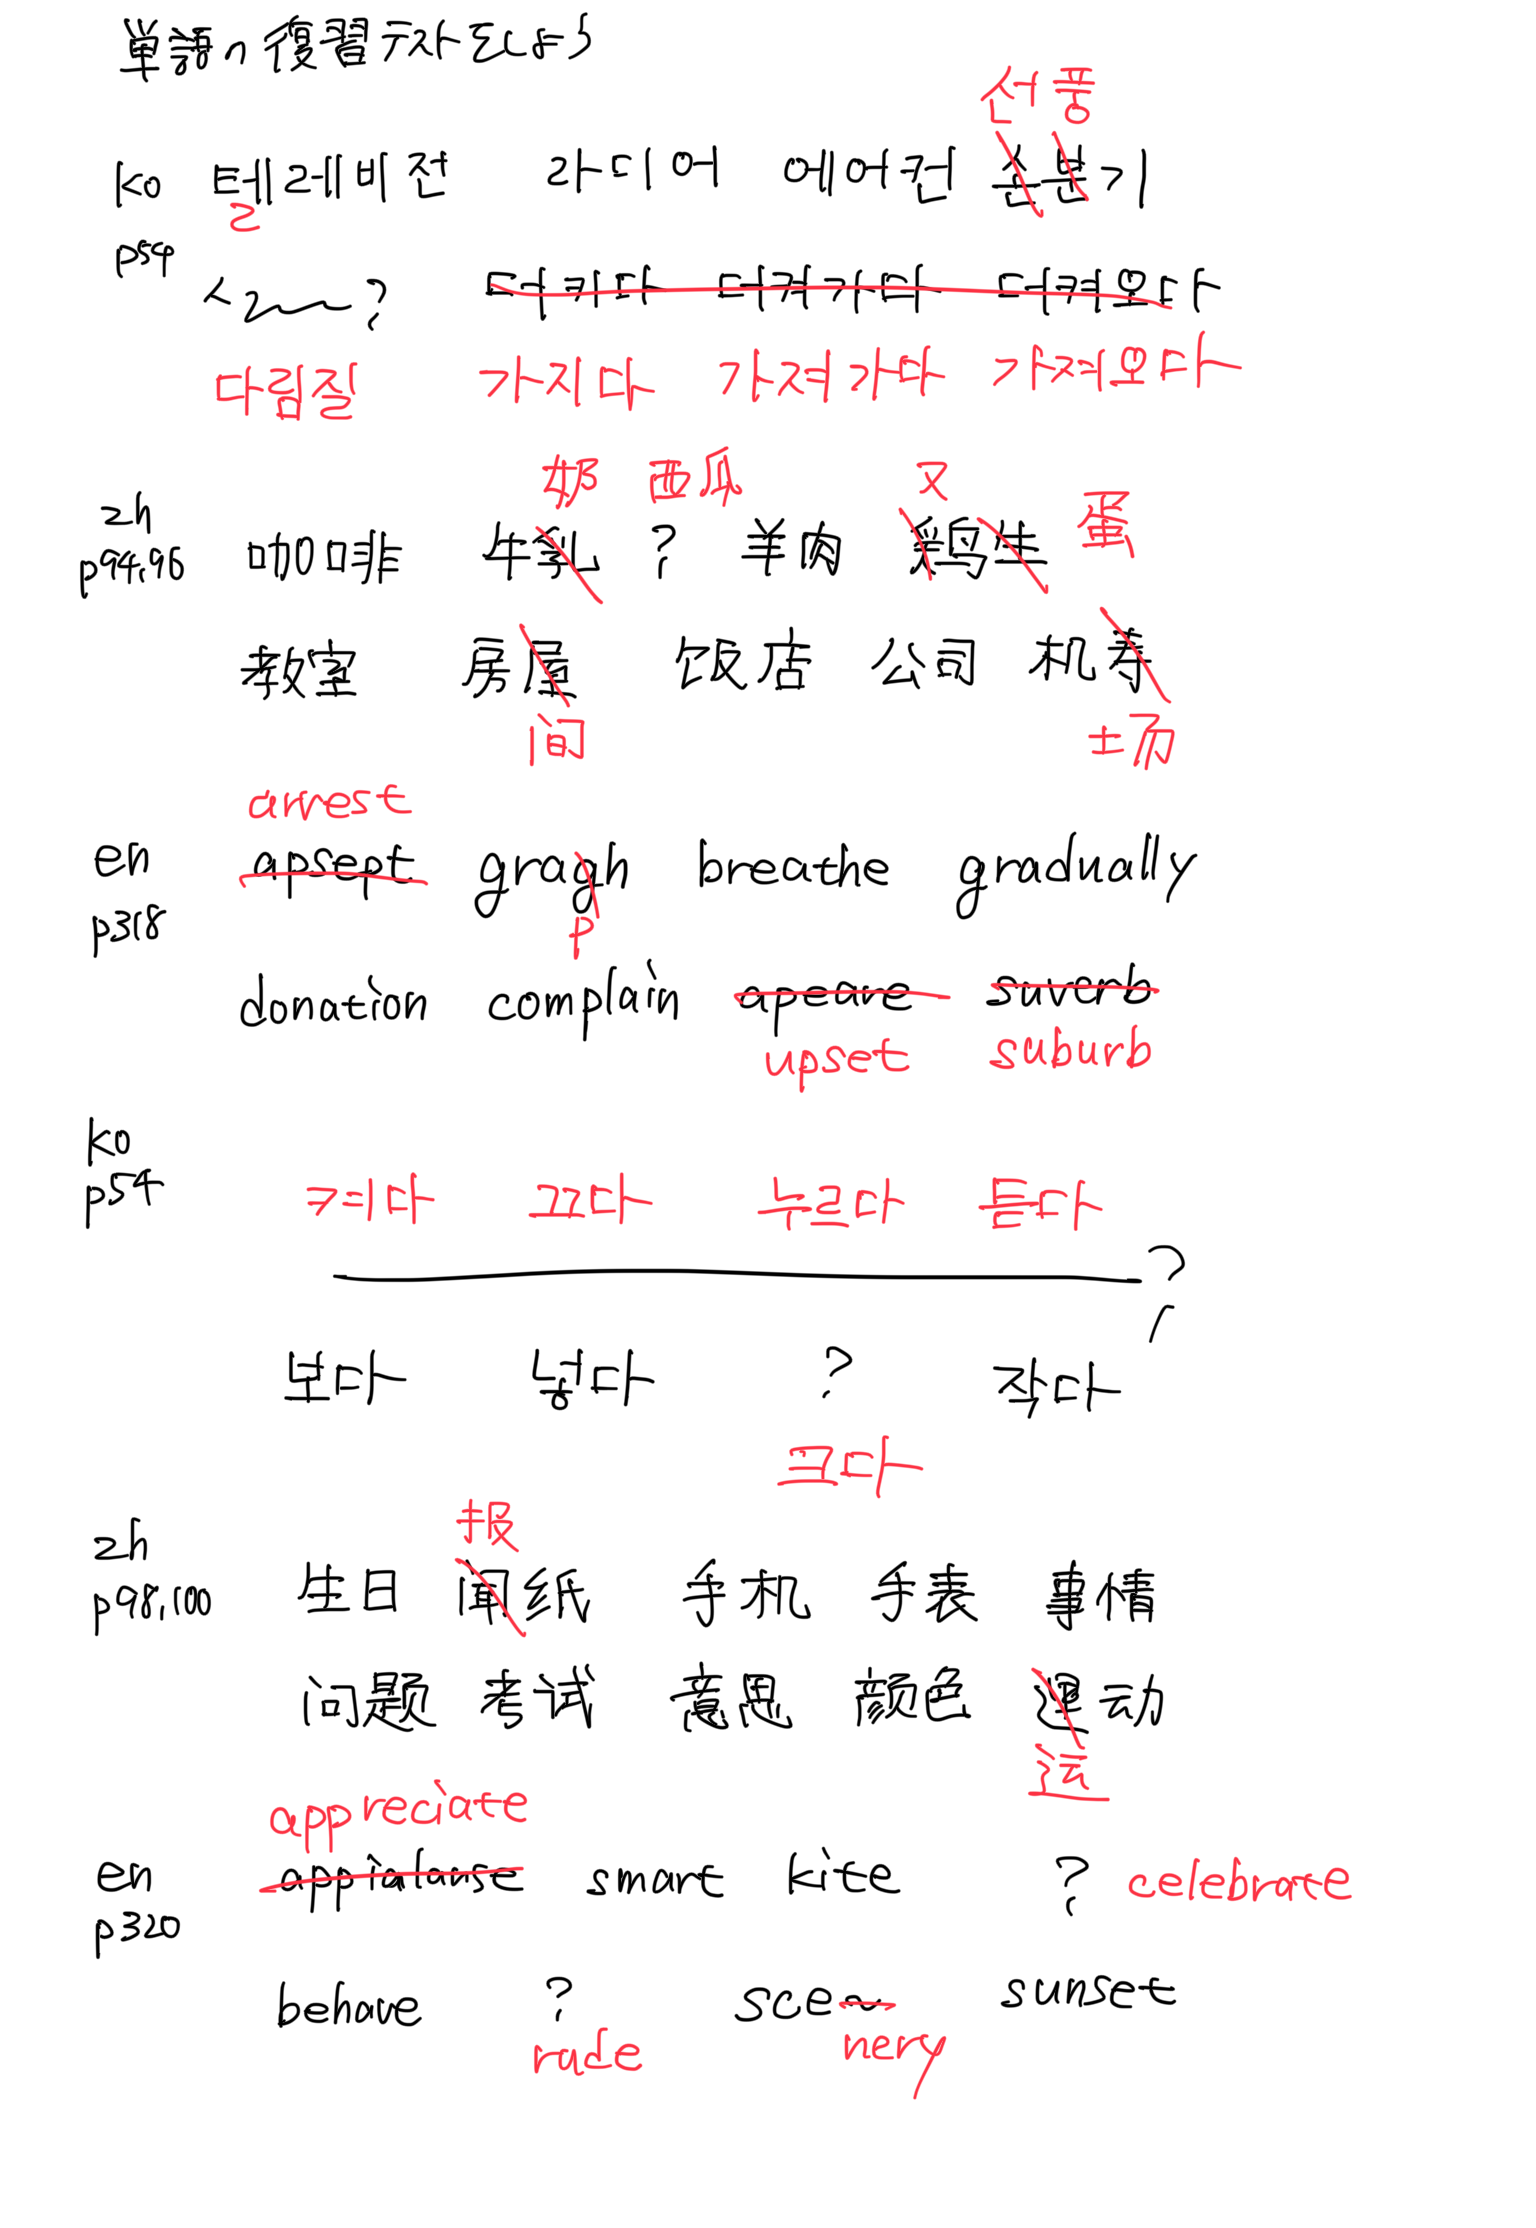 単語の復習テストをしよう
선풍
ko 테레비전 라디어 에어컨 순분기
ㄹ
p54 ? 더키다 더켜가다 더켜오다
다림질 가지다 가져가다 가져오다
奶 西瓜 又 蛋
zh p94,96 咖啡 牛乳 ? 羊肉 鶏生
教室 房屋 饭店 公司 机寿
间 场
arrest
en apsept gragh breathe gradually
p318 p
donation complain apeare suverb
upset suburb
ko
p54 켜다 끄다 누르다 듣다
?
보다 넝다 ? 작다
크다
报
zh
p98,100 生日 闻纸 手机 手表 事情
问题 考试 意思 颜色 運动
运
appreciate
en appialanse smart kite ? celebrate
p320
behave ? sce sunset
rude nery